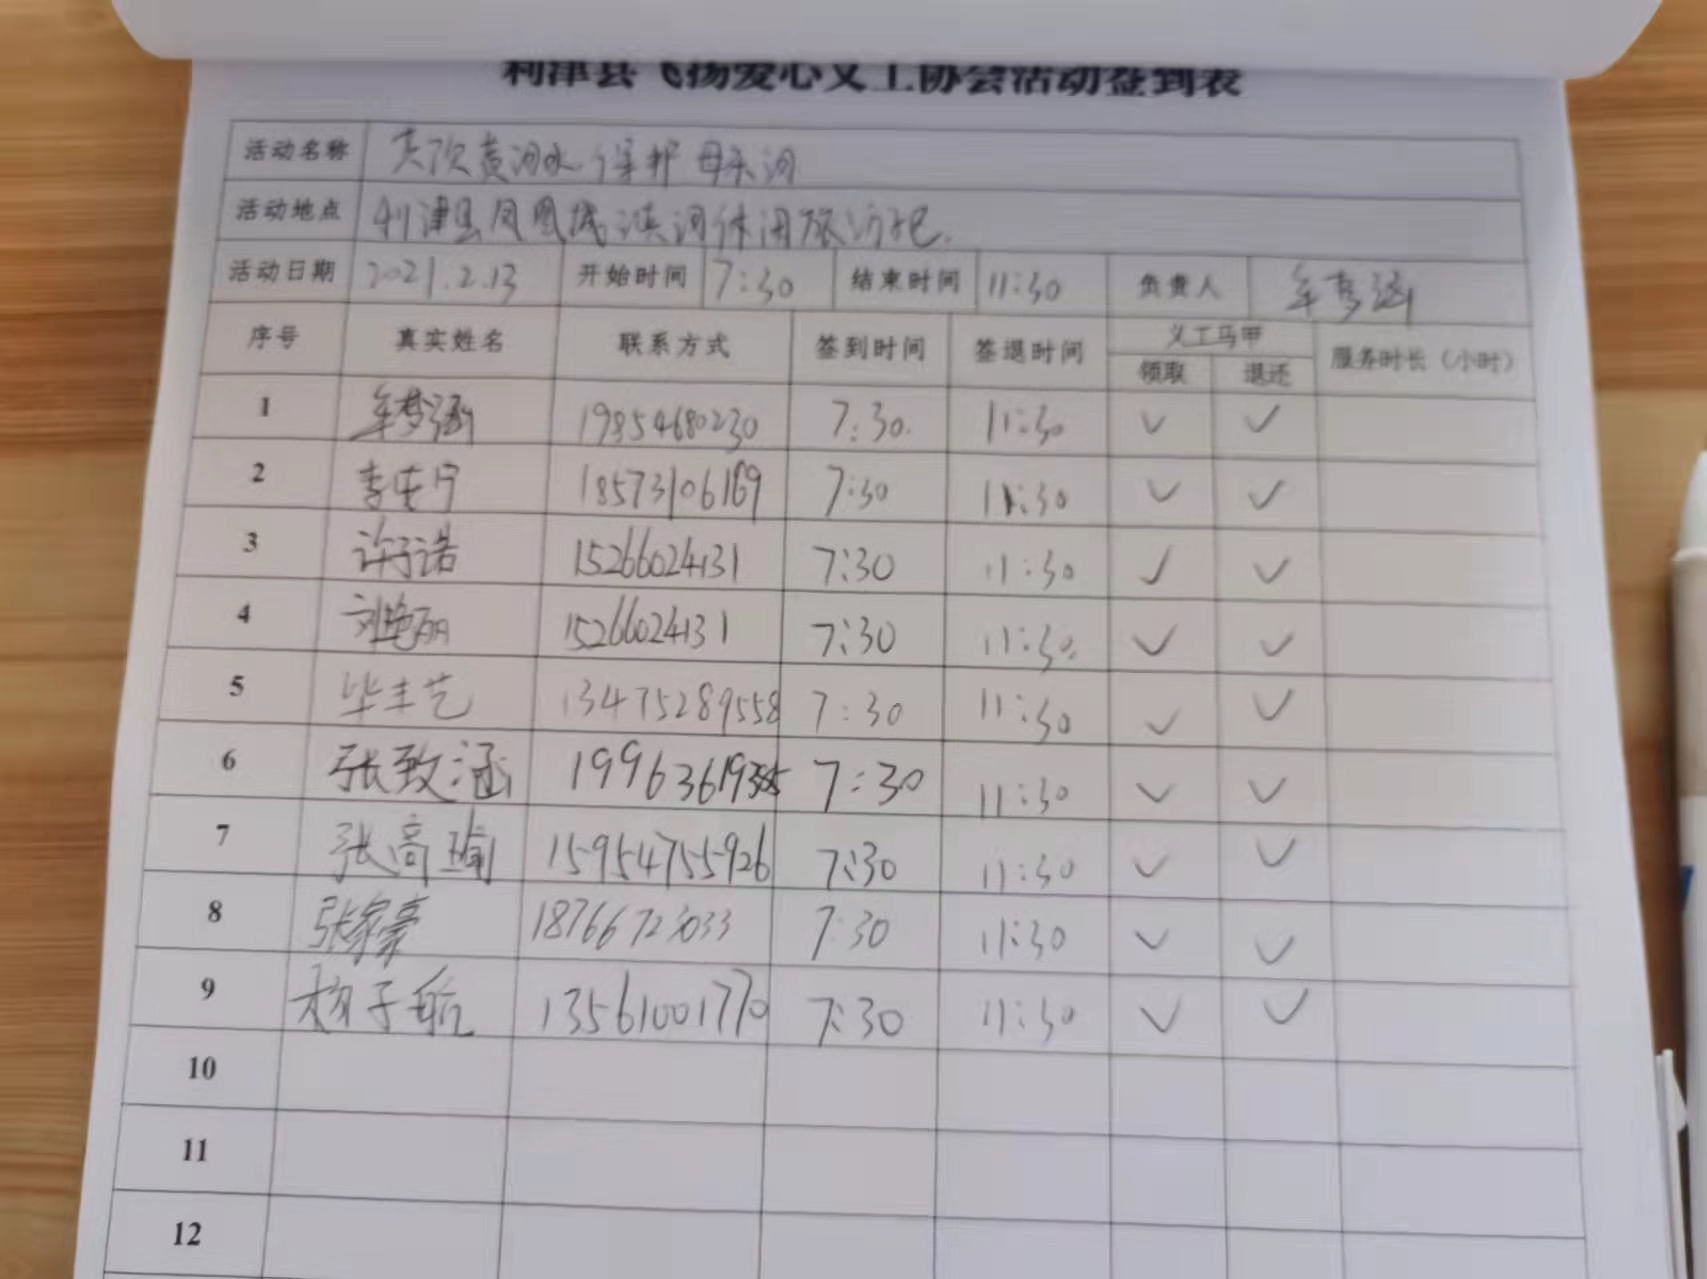 利津县飞扬爱心义工协会活动签到表
活动名称 共饮黄河水 保护母亲河
活动地点 利津县凤凰城滨河休闲旅游
活动日期 2021.2.13 开始时间 7:30 结束时间 11:30 负责人 牟梦涵
序号 真实姓名 联系方式 签到时间 签退时间 义工马甲 领取 退还 服务时长（小时）
1 牟梦涵 19854680230 7:30 11:30 ✓ ✓
2 李 7:30 11:30 ✓ ✓
3 许子诺 15266024131 7:30 11:30 ✓ ✓
4 刘艳丽 15266024131 7:30 11:30 ✓ ✓
5 毕丰艺 13475289558 7:30 11:30 ✓ ✓
6 张致涵 7:30 11:30 ✓ ✓
7 张高瑜 15954755926 7:30 11:30 ✓ ✓
8 张家豪 18766723033 7:30 11:30 ✓ ✓
9 杨子航 13561001770 7:30 11:30 ✓ ✓
10
11
12